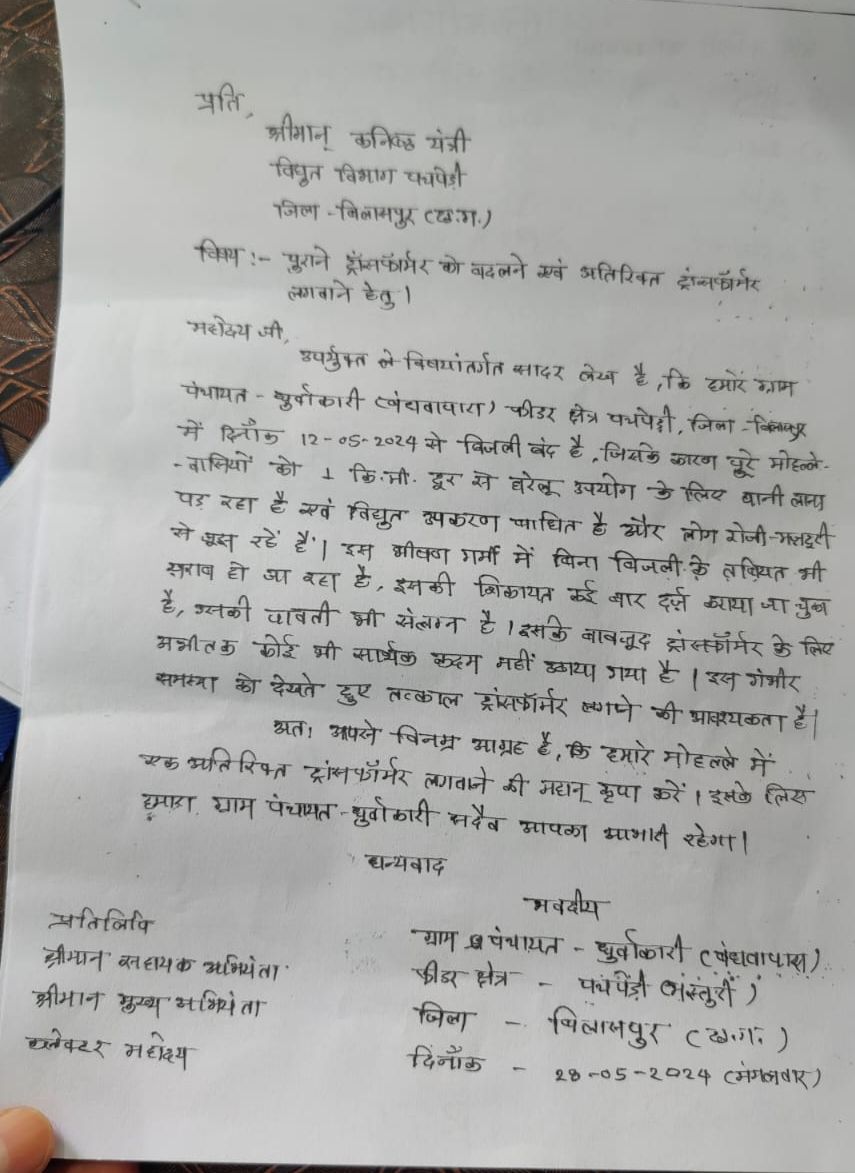 प्रति,
श्रीमान् कनिष्ठ यंत्री
विधुत विभाग पचपेड़ी
जिला - बिलासपुर (छ.ग.)
विषय :- पुराने ट्रॉंसफॉर्मर को बदलने एवं अतिरिक्त ट्रांसफॉर्मर
लगवाने हेतु।
महोदय जी,
उपर्युक्त ले विषयांतर्गत सादर लेख है, कि हमारे ग्राम
पंचायत - धुर्वाकारी (बंधवापारा) फीडर क्षेत्र पचपेड़ी, जिला - बिलासपुर
में दिनाँक 12-05-2024 से बिजली बंद है, जिसके कारण पूरे मोहल्ले-
-वासियों को 1 कि.मी. दूर से घरेलू उपयोग के लिए पानी लाना
पड़ रहा है एवं विद्युत उपकरण बाधित है और लोग रोजी-मजदूरी
से जूझ रहें हैं। इस भीषण गर्मी में बिना बिजली के तबियत भी
खराब हो जा रहा है, इसकी शिकायत कई बार दर्ज कराया जा चुका
है, उसकी पावती भी संलग्न है। इसके बावजूद ट्रांसफॉर्मर के लिए
अभीतक कोई भी सार्थक कदम नहीं उठाया गया है। इस गंभीर
समस्या को देखते हुए तत्काल ट्रांसफॉर्मर लगाने की आवश्यकता है।
अतः आपसे विनम्र आग्रह है, कि हमारे मोहल्ले में
एक अतिरिक्त ट्रांसफॉर्मर लगवाने की महान् कृपा करें। इसके लिए
हमारा ग्राम पंचायत - धुर्वाकारी सदैव आपका आभारी रहेगा।
धन्यवाद
भवदीय
ग्राम पंचायत - धुर्वाकारी (बंधवापारा)
फीडर क्षेत्र - पचपेड़ी (मस्तुरी)
जिला - बिलासपुर (छ.ग.)
दिनाँक - 28-05-2024 (मंगलवार)
प्रतिलिपि
श्रीमान सहायक अभियंता
श्रीमान मुख्य अभियंता
कलेक्टर महोदय